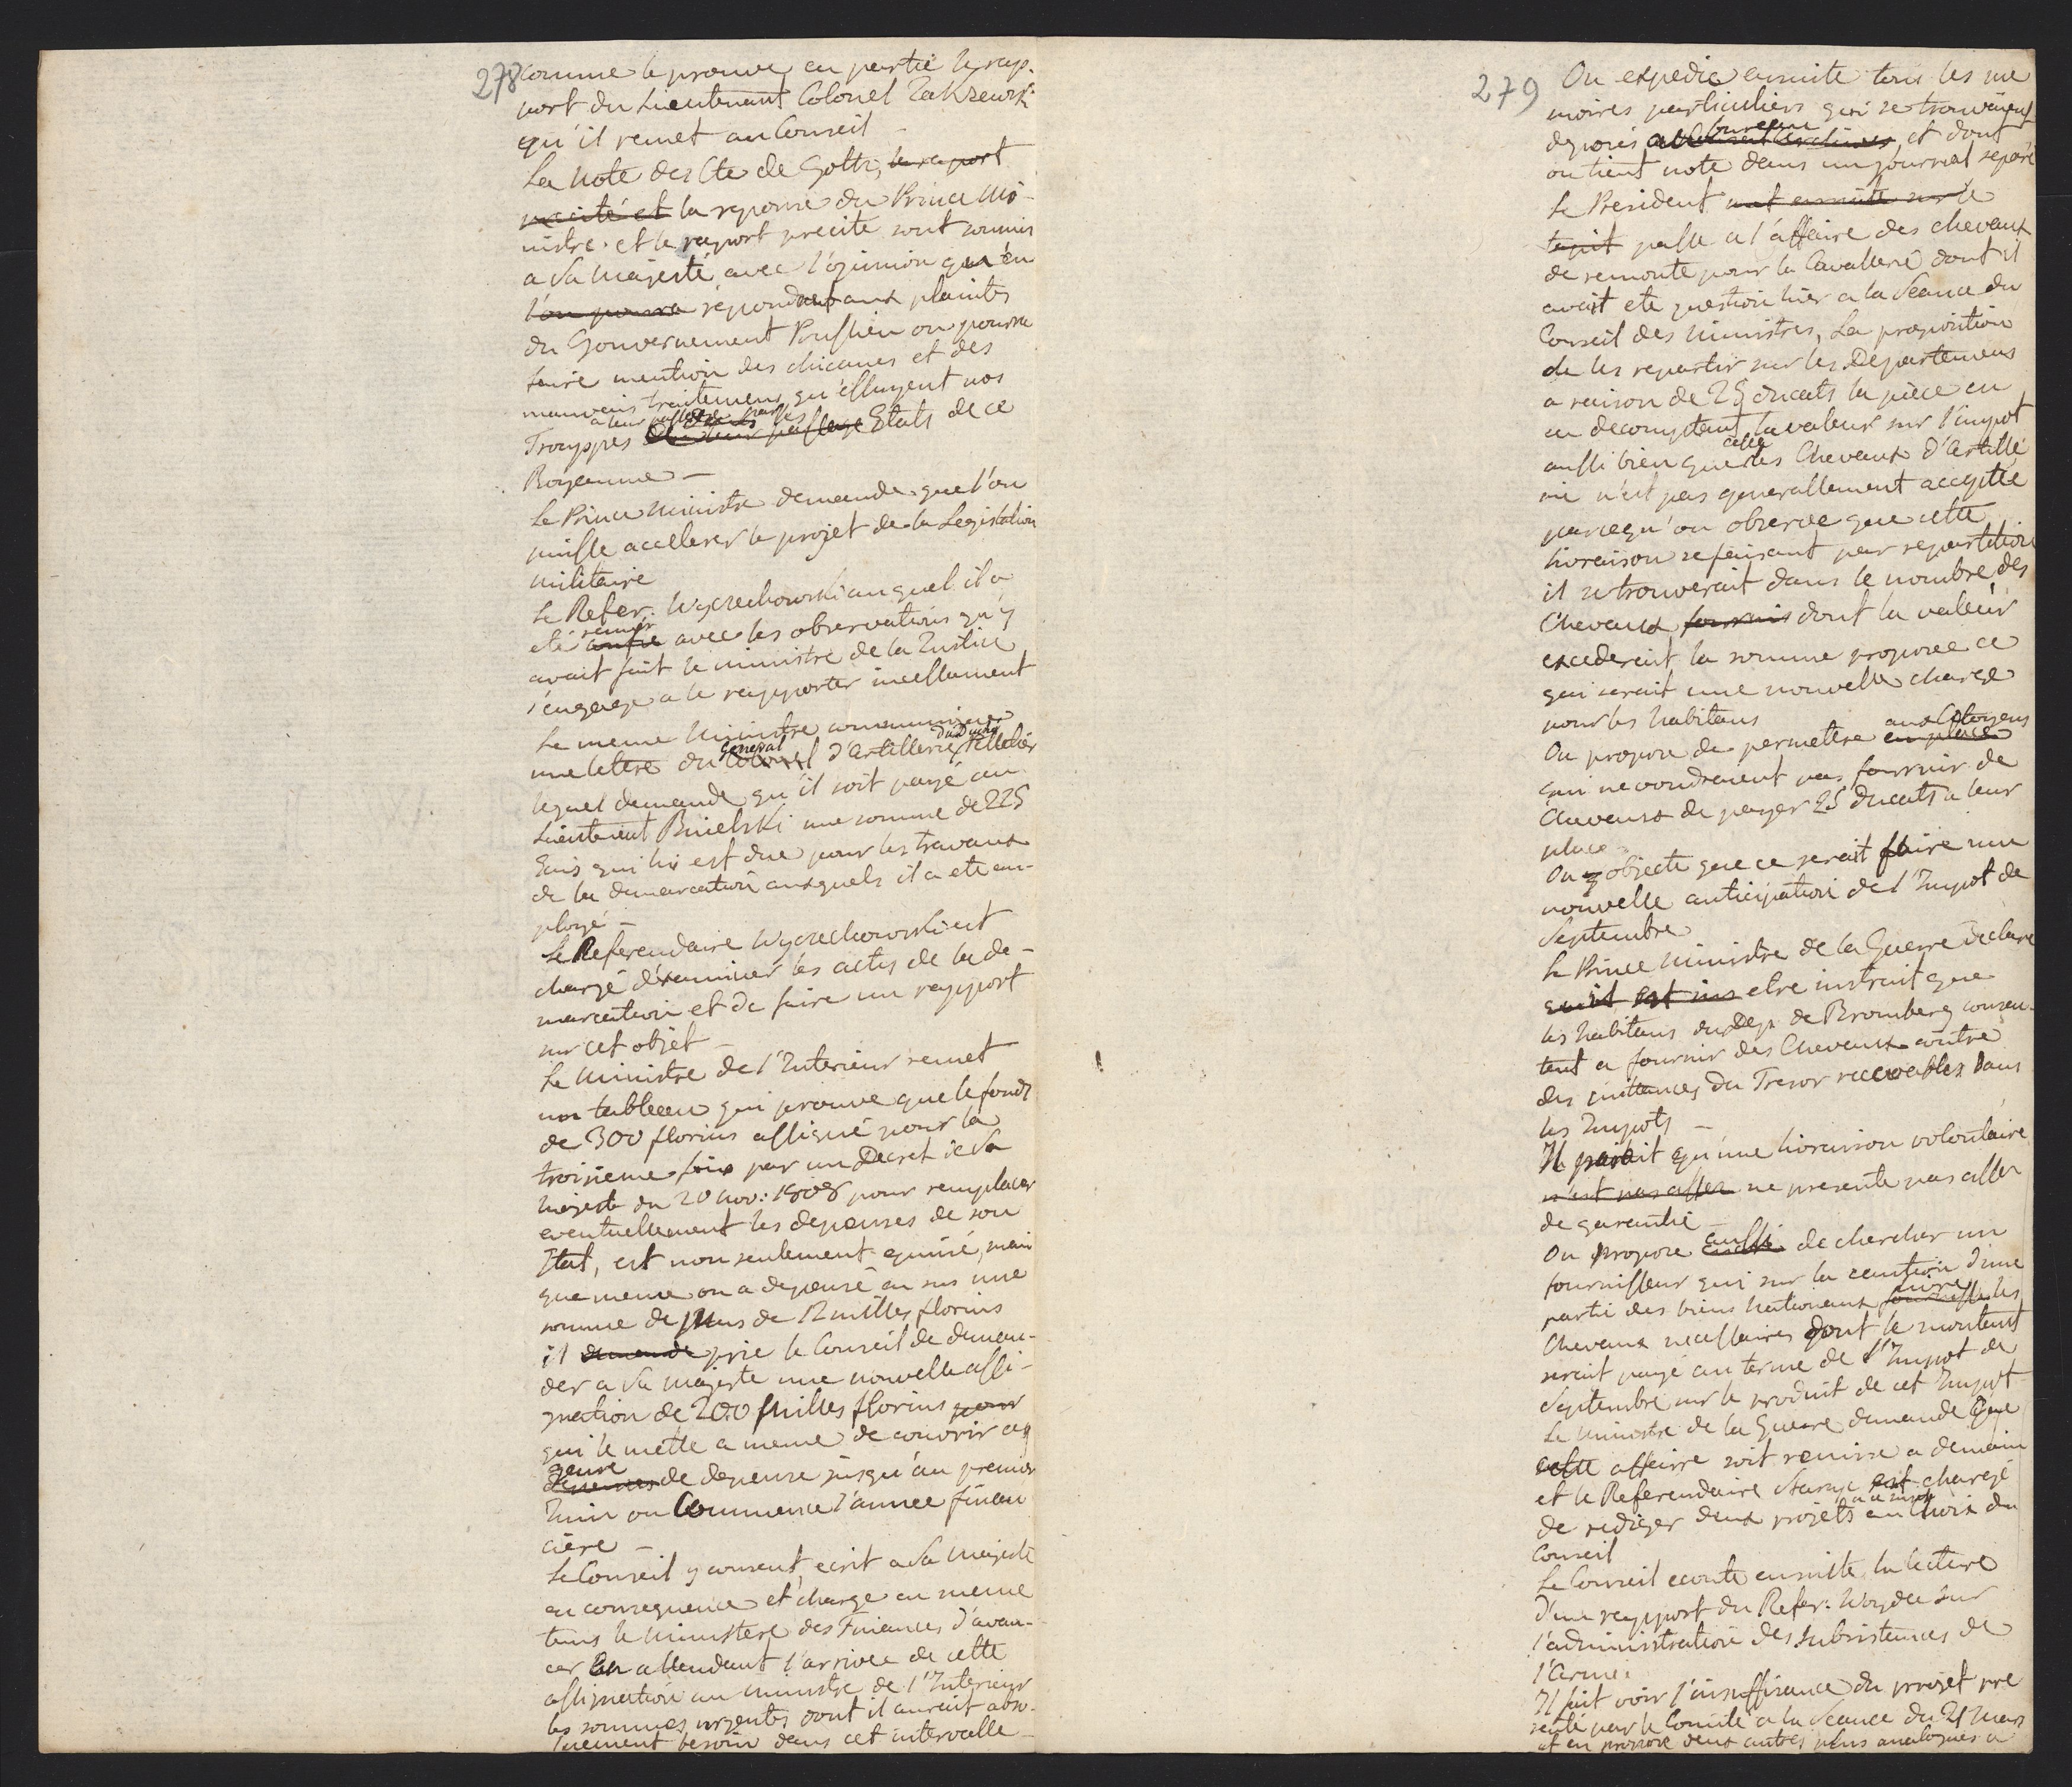 278
comme le prouve en partie le rap-
port du Lieutenant Colonel Zakrzewski
qu'il remet au Conseil
La Note des Cte de Goltz, le raport
precité et la reponse du Prince Mi-
nistre et le raport precité sont soumis
a Sa Majesté avec l'opinion qu'en
l'on pourra repondant aux plaintes
du Gouvernement Prussien on pourra
faire mention des chicanes et des
mauvais traitemens qu'essuyent nos
Trouppes a leur passage par les Etats de ce
Royaume —
Le Prince Ministre demande que l'on
puisse accellerer le projet de la Legislation
militaire
Le Refer: Wyczechowski auquel il a
eté remis avec les observations qu'y
avait fait le ministre de la Justice
s'engage a le rapporter incessament
Le meme Ministre communique
une lettre du General d'artillerie du Duché Pelletier
lequel demande qu'il soit payé au
Lieutenant Bnielski une somme de 225
ecus qui lui est due pour les travaux
de la demarcation auxquels il a eté em-
ployé —
Le Referendaire Wyczechowski est
chargé d'examiner les actes de la de-
marcation et de faire un rapport
sur cet objet —
Le Ministre de l'Interieur remet
un tableau qui prouve que le fonds
de 300 florins assigné pour la
troisieme fois par un Decret de Sa
Majesté du 20 Nov: 1808 pour remplacer
eventuellement les depenses de son
Etat, est non seulement epuisé, mais
que meme on a depensé en sus une
somme de plus de 12 milles florins
il demande prie le Conseil de deman-
der a Sa Majesté une nouvelle assi-
gnation de 200 milles florins pour
qui le mette a meme de couvrir ce
genre de depense jusqu'au premier
Juin ou Commence l'année finan
ciere —
Le Conseil y consent, ecrit a Sa Majesté
en consequence et charge en meme
tems le Ministere des Finances d'avan-
cer En attendant l'arrivée de cette
assignation au ministre de l'Interieur
les sommes urgentes dont il aurait abso-
lument besoin dans cet intervalle —
279
On expedie ensuite tous les me
moires particuliers qui se trouvaient
deposés au bureau et dont
on tient note dans un journal separé
Le President met ensuite sur le
tapit passe a l'affaire des chevaux
de remonte pour la Cavallerie dont il
avait eté question hier a la Seance du
Conseil des Ministres, La proposition
de les repartir sur les Departemens
a raison de 25 ducats la pièce en
en decomptant la valeur sur l'impot
aussi bien que celle des Chevaux d'artille
rie n'est pas generallement acceptée
parcequ'on observe que cette
livraison se faisant par repartition
il se trouverait dans le nombre des
Chevaux fournis dont la valeur
excederait la somme proposée ce
qui serait une nouvelle charge
pour les habitans
On propose de permettre aux Citoyens
qui ne voudraient pas fournir de
Chevaux de payer 25 ducats a leur
place
On y objecte que ce serait faire une
nouvelle anticipation de l'Impot de
Septembre
Le Prince Ministre de la Guerre declare
qu'il est ins etre instruit que
les habitans du Dep: de Bromberg consen-
tent a fournir des Chevaux contre
des quittances du Tresor recevables dans
les Impots —
Il parait qu'une livraison volontaire
n'est pas assez ne presente pas assez
de garantie —
On propose aussi de chercher un
fournisseur qui sur la caution d'une
partie des biens Nationaux livre les
Chevaux necessaires dont le montant
serait payé au terme de l'Impot de
Septembre sur le produit de cet Impot
Le Ministre de la Guerre demande que
cette affaire soit remise a demain
et le Referendaire est chargé
de rediger deux projets a ce sujet au Choix du
Conseil
Le Conseil ecoute ensuite la lecture
d'un rapport du Refer: Woyda sur
l'administration des subsistances de
l'armée
Il fait voir l'insuffisance du projet pre
senté par le Comité a la Seance du 21 Mars
et en propose deux autres plus analogues a